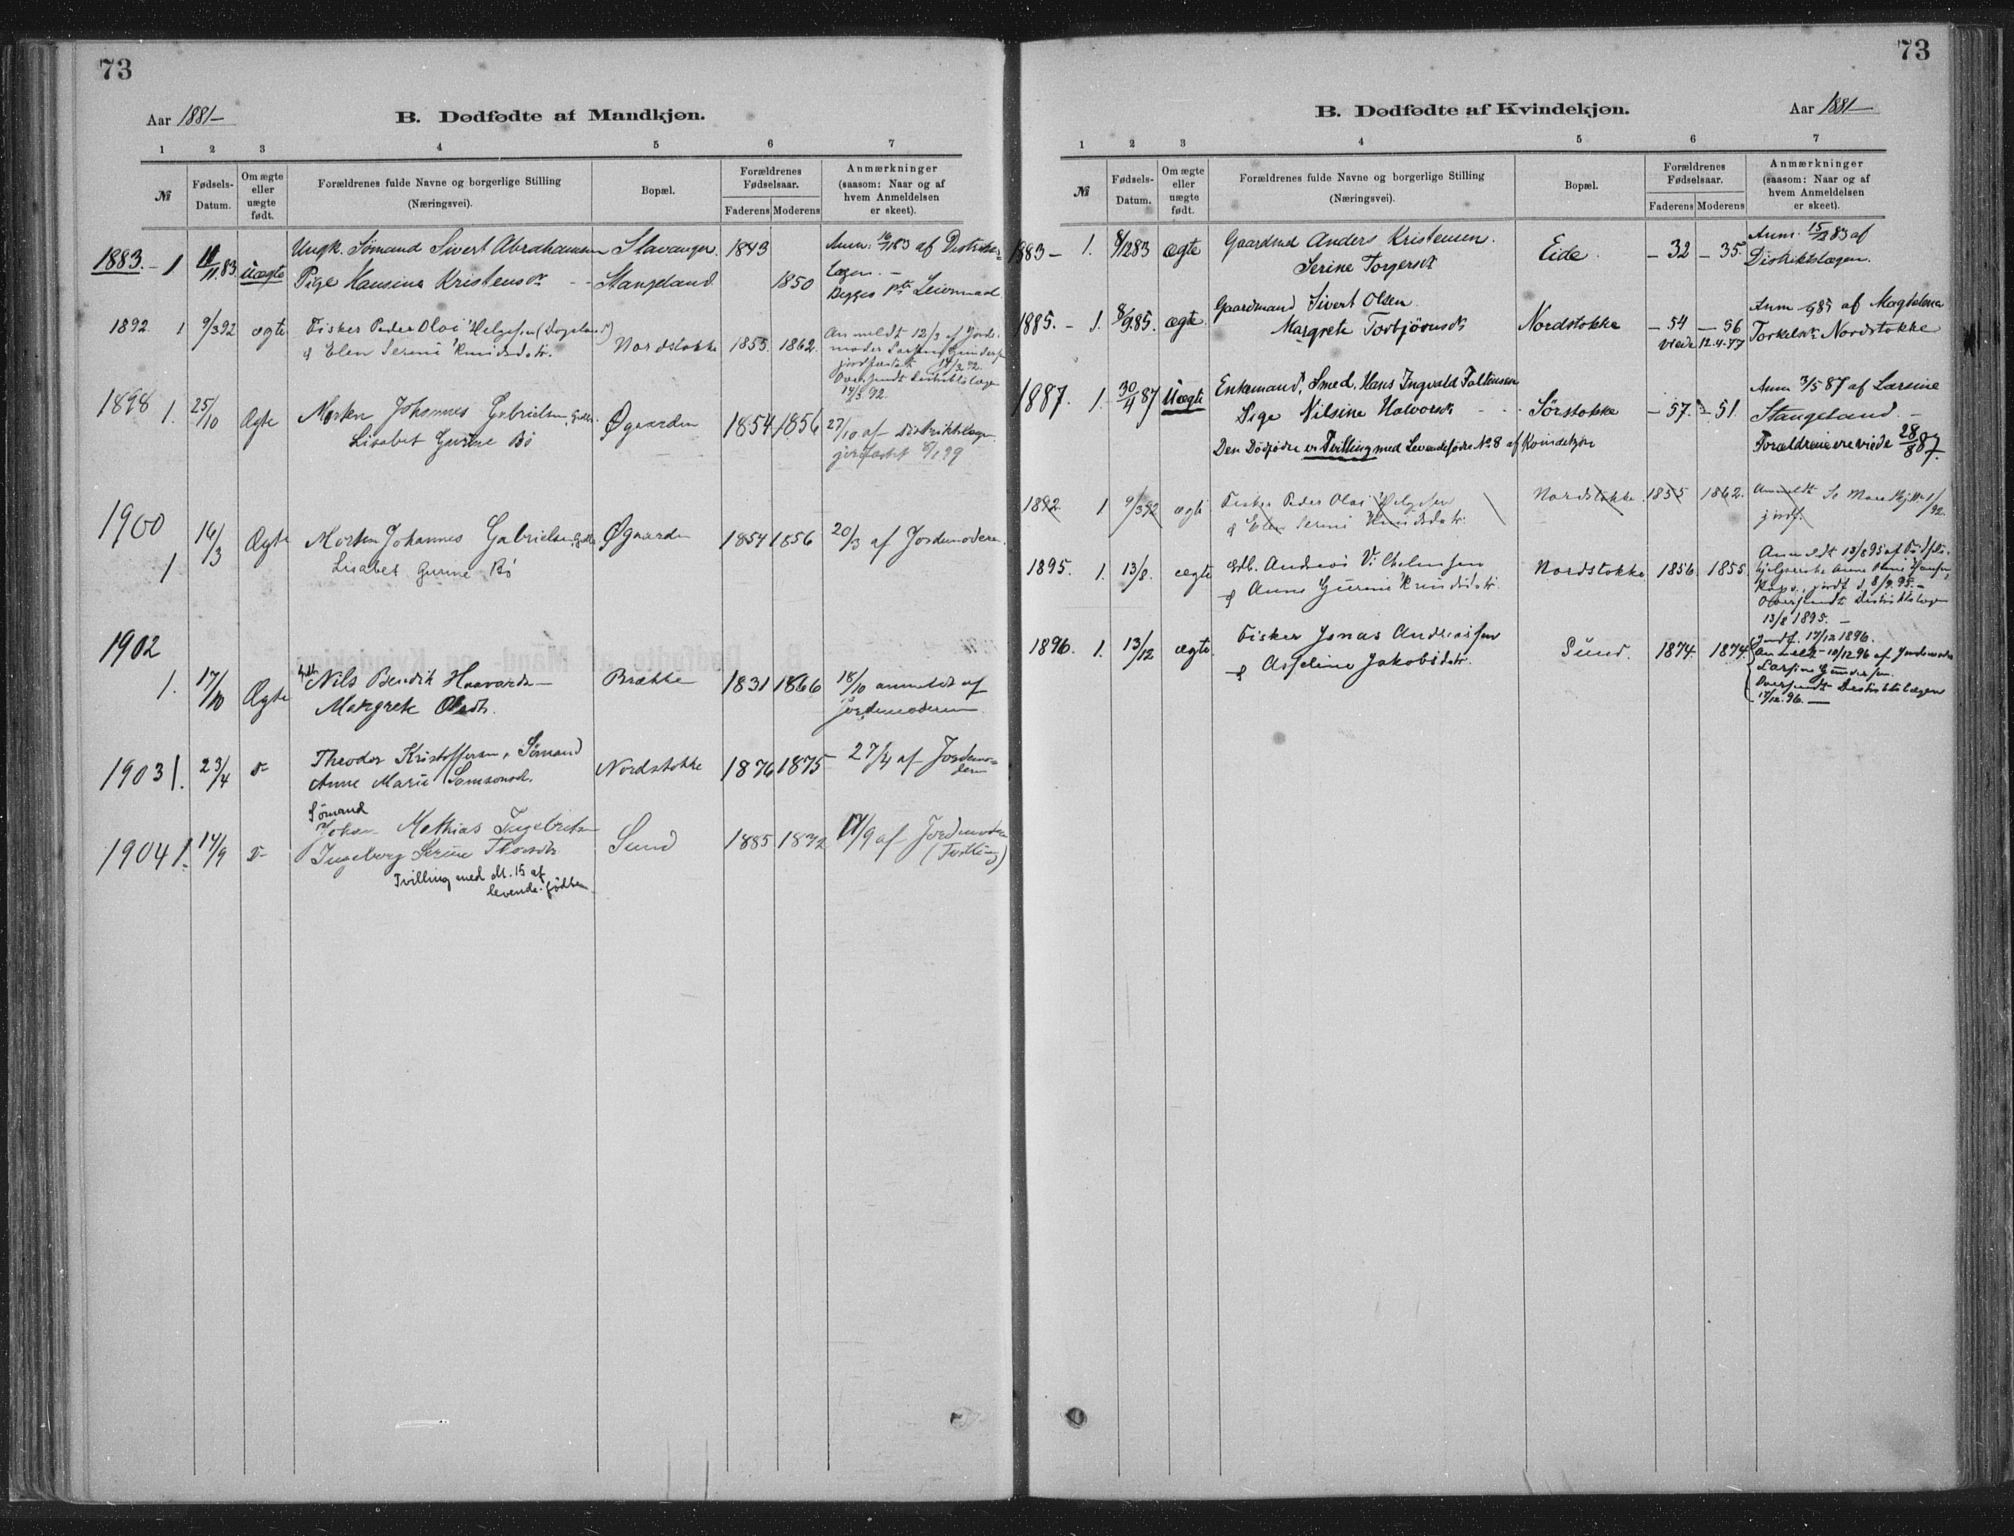 73
Aar 1881-
B. Dødfødte af Mandkjøn.
1 2 3 4 5 6 7
№ Fødsels-Datum. Om ægte eller uægte født. Forældrenes fulde Navne og borgerlige Stilling (Næringsvei). Bopæl. Forældrenes Fødselsaar. Faderens Moderens Anmærkninger (saasom: Naar og af hvem Anmeldelsen er skeet).
1883.- 1 11/11.83 Uægte Ungk. Sømand Sivert Abrahamsen Stavanger 1843
Pige Hansine Kristensdr Stangeland 1850
Begges 1ste Leiermaal
1892 1 9/3 92 ægte Fisker Peder Olai Helgesen
& Elen Serine Knudsdatr. Nordstokke 1855. 1862. Anmeldt 12/3 af Jorde-
14/3 92.
1898 1. 25/10 Ægte Morten Johannes Gabrielsen Øgaarden 1854 1856 27/10 af Distriktslægen
Lisabet Gurine Bø
1900
1 16/3 Ægte Morten Johannes Gabrielsen Øgaarden 1854 1856 20/3 af Jordemoderen.
Lisabet Gurine Bø
1902
1. 17/10 Ægte Nils Bendik Haavards- Brække 1831 1866 18/10 anmeldt af
Margrete Olsdtr. Jordemoderen
1903 1. 23/4 Theodor Kristoffersen, Sømand Nordstokke 1876 1875 27/4 af Jordemo-
Anne Marie Samsonsd. deren
Sømand
1904 1. 14/9 Johan Mathias Ingebretsen Sund 1885 1872 17/9 af Jordemoderen
Ingeborg Serine Thorsdtr (Tvilling)
Tvilling med N. 15 af
levende-fødte
73
B. Dødfødte af Kvindekjøn.
Aar 1881-
1 2 3 4 5 6 7
№ Fødsels-Datum. Om ægte eller uægte født. Forældrenes fulde Navne og borgerlige Stilling (Næringsvei). Bopæl. Forældrenes Fødselsaar. Faderens Moderens Anmærkninger (saasom: Naar og af hvem Anmeldelsen er skeet).
1883- 1. 8/12 83 ægte Gaardmd Anders Kristensen. Eide. -32 -35. Anm. 15/12 83 af
Serine Torgersdr Distriktslægen.
1885.- 1. 8/9.85. ægte Gaardmand Sivert Olsen Nordstokke -54 -56 af Magdalena
Margrete Torbjørnsdr viede 12.4.77 Torkelsdr Nordstokke
1887. 1. 30/4 87 Uægte Enkemand, Smed, Hans Ingvald Faltinsen Anm 3/5 87 af Larsine
Pige Nilsine Halvorsdr Sørstokke -57. -51. Stangeland.-
Den Dødfødte er Tvilling med Levendefødte No 8 af Kvindekjøn Forældrene ere viede 28/8 87.
1892 1 9/3 92 ægte Fisker Peder Olai Helgesen Nordstokke 1855 1862. Anmeldt Se Mandkj No 1/92.
& Elen Serine Knudsdatr. jordf.
1895. 1. 13/8. ægte Andreas Vilhelmsen Nordstokke 1856. 1855.
& Anne Gurine Knudsdatr. jordf. d. 8/9.95.-
Oversendt Distriktslægen
13/8 1895.-
1896. 1. 13/12 ægte. Fisker Jonas Andreassen Sund. 1874. 1874. Jordf. 17/12 1896.
& Asseline Jakobsdatr. Anmeldt 10/12 96 af Jordemoder
Larsine Gundersen.
Oversendt Distriktslægen
17/12.96.-